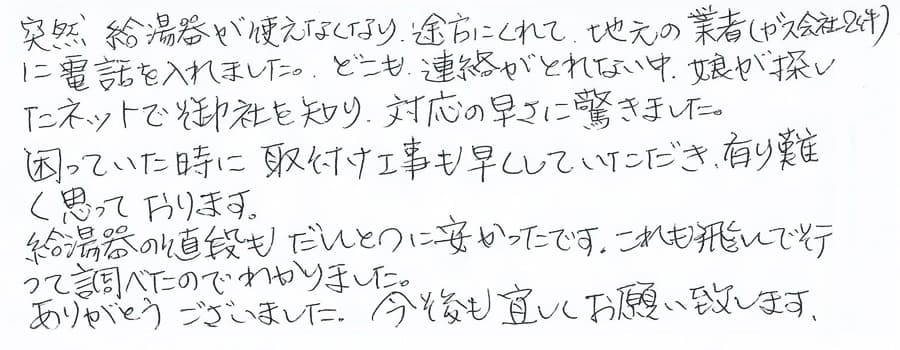 突然 給湯器が使えなくなり、途方にくれて、地元の業者(ガス会社2件)
に電話を入れました。どこも、連絡がとれない中、娘が探し
たネットで御社を知り、対応の早さに驚きました。
困っていた時に 取付け工事も早くしていただき、有り難
く思っております。
給湯器の値段も だんとつに安かったです。これも飛んで行
って調べたのでわかりました。
ありがとうございました。今後も宜しくお願い致します、